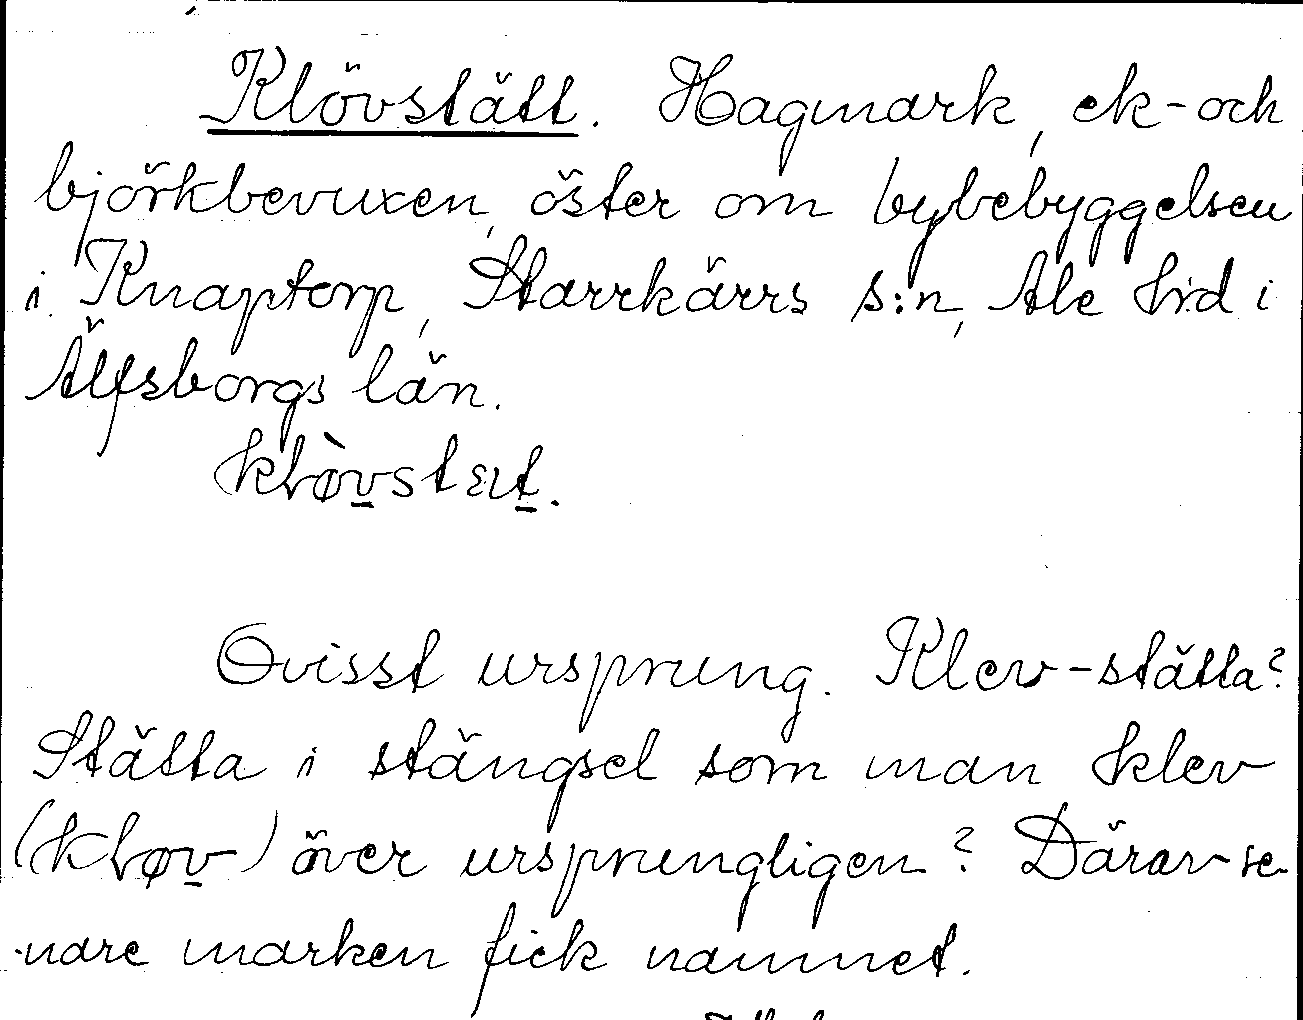 Klövstätt. Hagmark, ek- och
björkbevuxen, öster om bybebyggelsen
i Knaptorp, Starrkärrs s:n, Ale h:d i
Älfsborgs län.
Ovisst ursprung. Klev-stätta?
Stätta i stängsel som man klev
över ursprungligen? Därav se-
nare marken fick namnet.